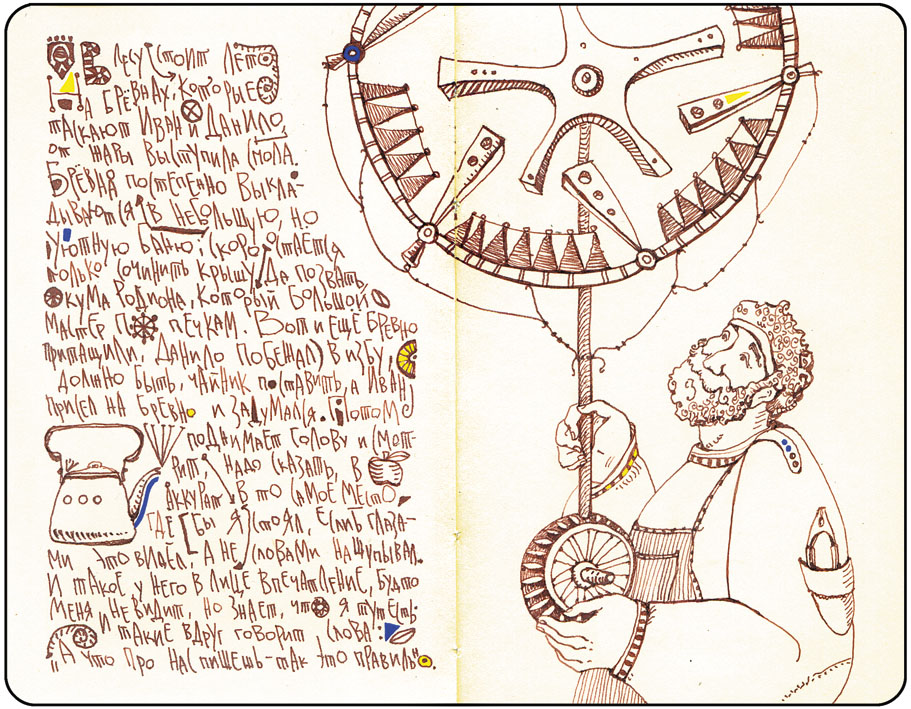 В лесу стоит лето
На бревнах, которые
таскают Иван и Данило,
от жары выступила смола.
Бревна постепенно выкла-
дываются в небольшую, но
уютную баню; скоро остается
только сочинить крышу, да позвать
кума Родиона, который большой
мастер по печкам. Вот и еще бревно
притащили, Данило побежал в избу,
должно быть, чайник поставить, а Иван
присел на бревно и задумался. Потом
поднимает голову и смот-
рит, надо сказать, в
аккурат в то самое место,
где бы я стоял, еслиб глаза-
ми это видел, а не словами нащупывал.
И такое у него в лице впечатление, будто
меня не видит, но знает, что я тут есть.
такие вдруг говорит слова:
„А что про нас пишешь - так это правиль"о.